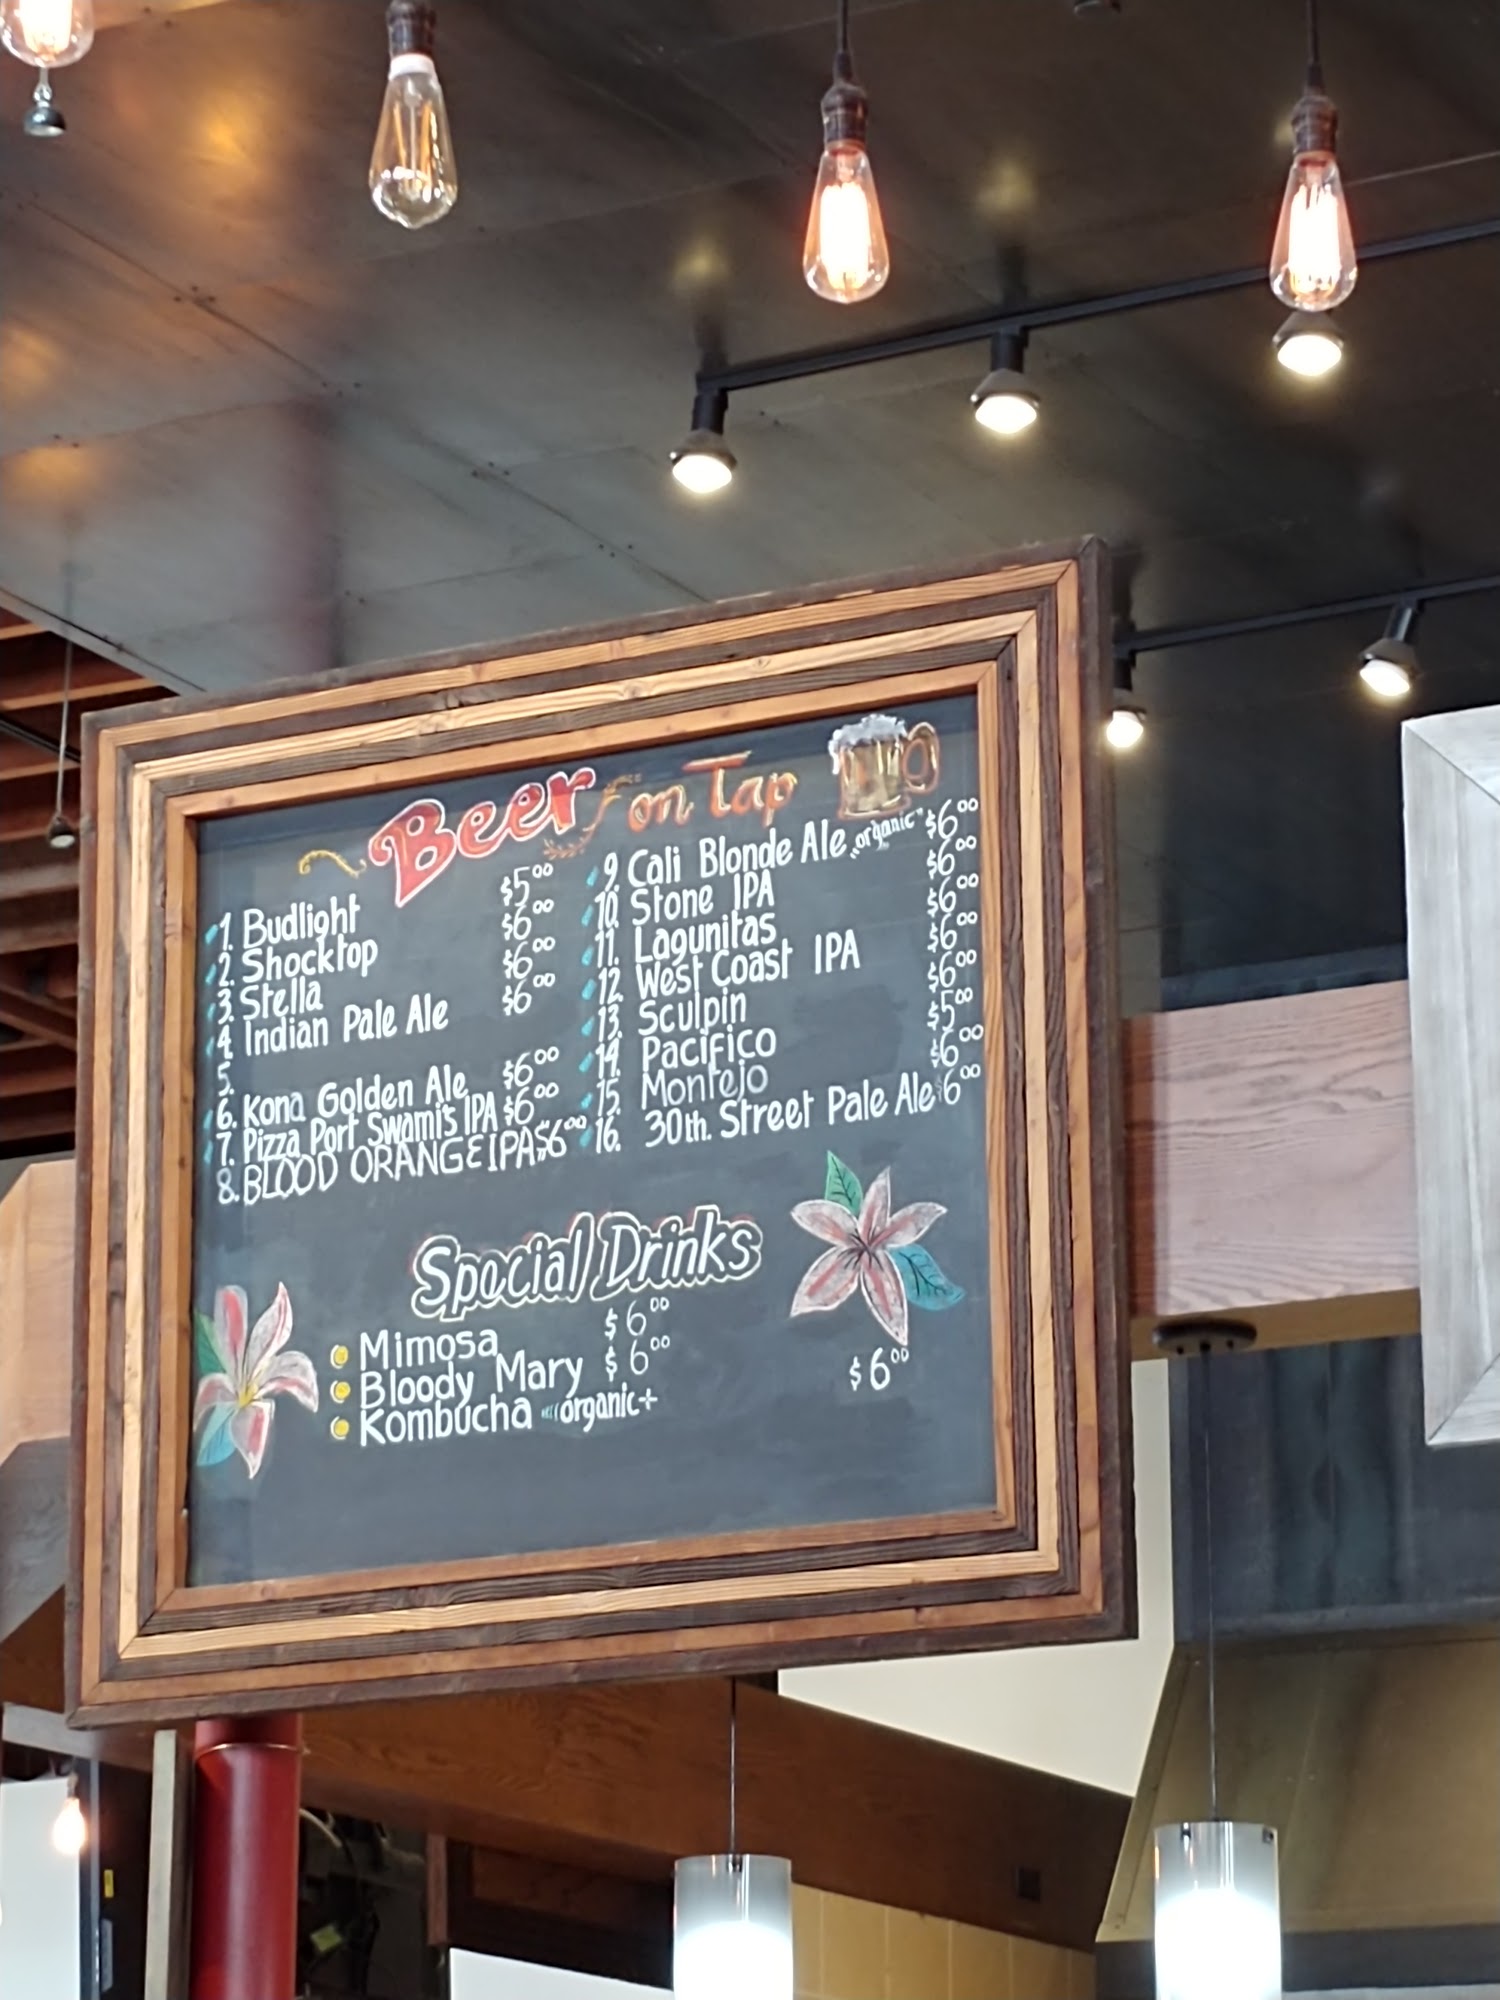 Beer on Tap
1. Budlight $5⁰⁰
2. Shocktop $6⁰⁰
3. Stella $6⁰⁰
4. Indian Pale Ale $6⁰⁰
5.
6. Kona Golden Ale $6⁰⁰
7. Pizza Port Swami's IPA $6⁰⁰
8. BLOOD ORANGE IPA $6⁰⁰
9. Cali Blonde Ale „organic" $6⁰⁰
10. Stone IPA $6⁰⁰
11. Lagunitas $6⁰⁰
12. West Coast IPA $6⁰⁰
13. Sculpin $6⁰⁰
14. Pacifico $5⁰⁰
15. Montejo $6⁰⁰
16. 30th. Street Pale Ale $6⁰⁰
Special Drinks
Mimosa $6⁰⁰
Bloody Mary $6⁰⁰
Kombucha organic+ $6⁰⁰